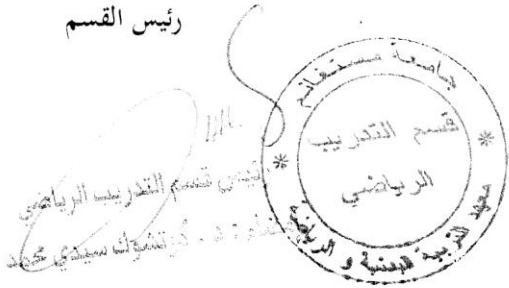 رئيس القسم
جامعة مستغانم
قسم التدريب
الرياضي
معهد التربية البدنية و الرياضية
رئيس قسم التدريب الرياضي
سيدي محمد